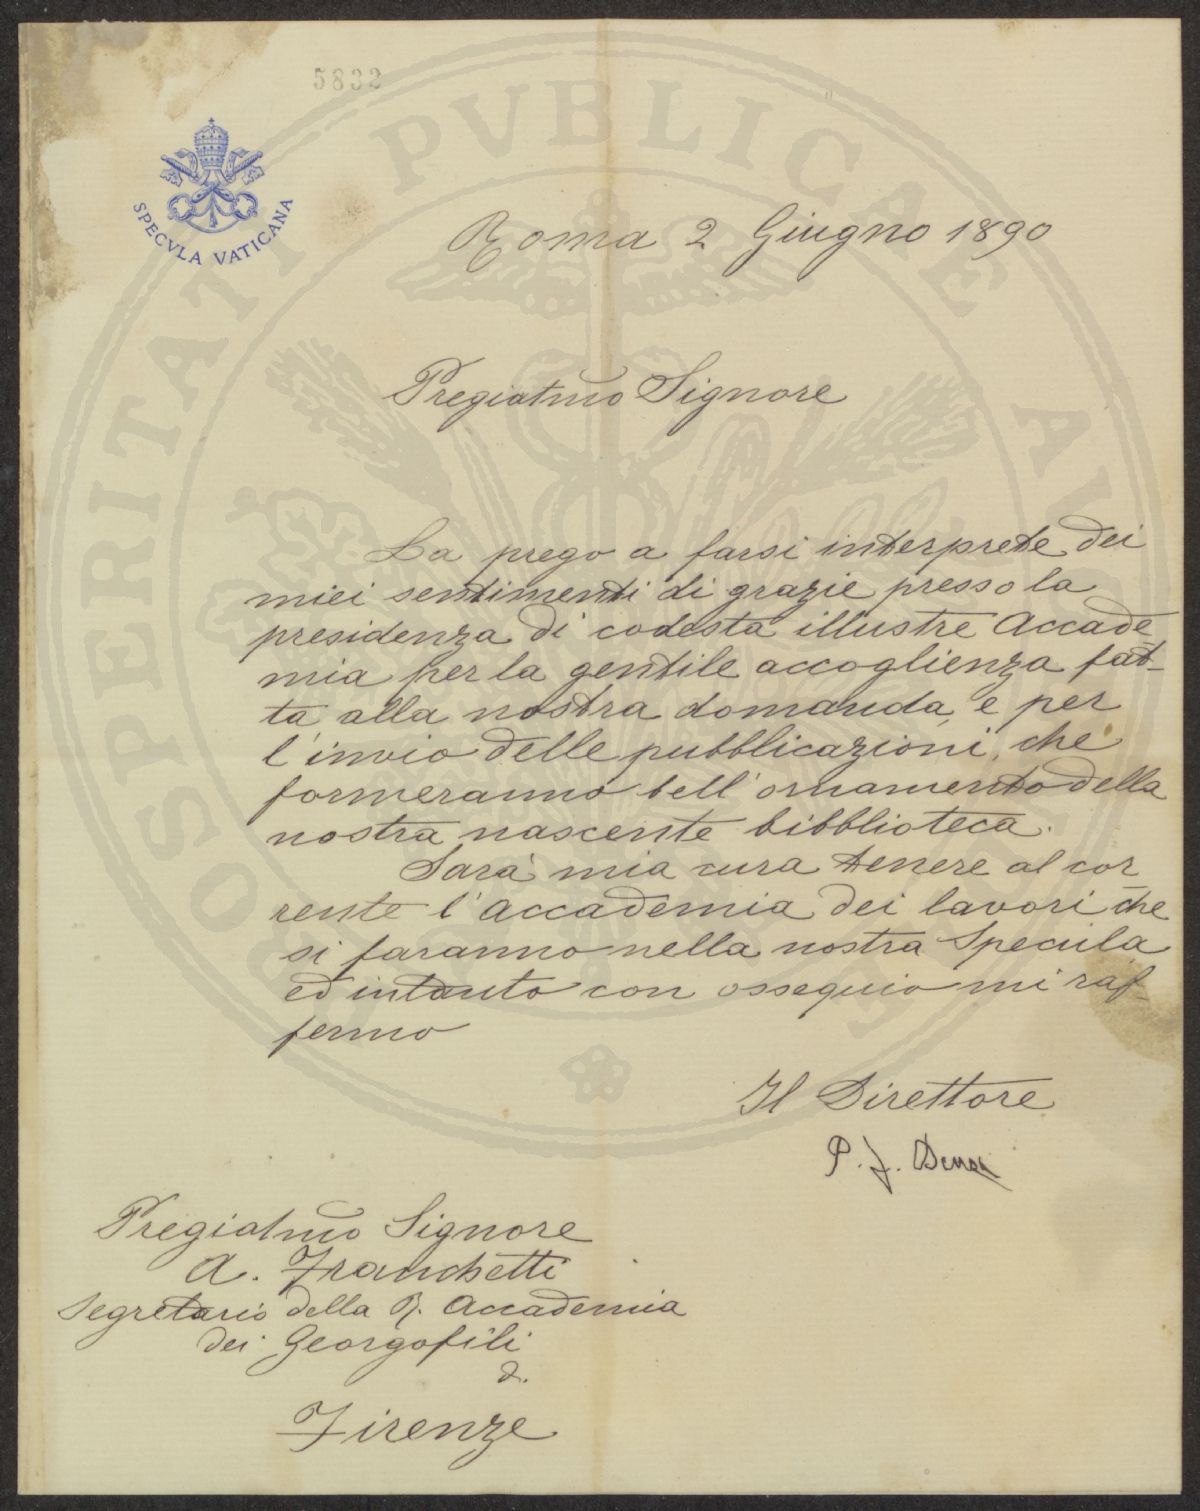 5832
SPECVLA VATICANA
PROSPERITATI PVBLICAE AVGENDAE
Roma 2 Giugno 1890
Pregiatmo Signore
La prego a farsi interprete dei
miei sentimenti di grazie presso la
presidenza di codesta illustre Accade-
mia per la gentile accoglienza fat-
ta alla nostra domanda, e per
l'invio delle pubblicazioni, che
formeranno bell'ornamento della
nostra nascente bibblioteca.
Sarà mia cura tenere al cor
rente l'Accademia dei lavori che
si faranno nella nostra Specula
ed intanto con ossequio mi raf-
fermo
Il Direttore
P. F. Denza
Pregiatmo Signore
A. Franchetti
Segretario della R. Accademia
dei Georgofili
di
Firenze